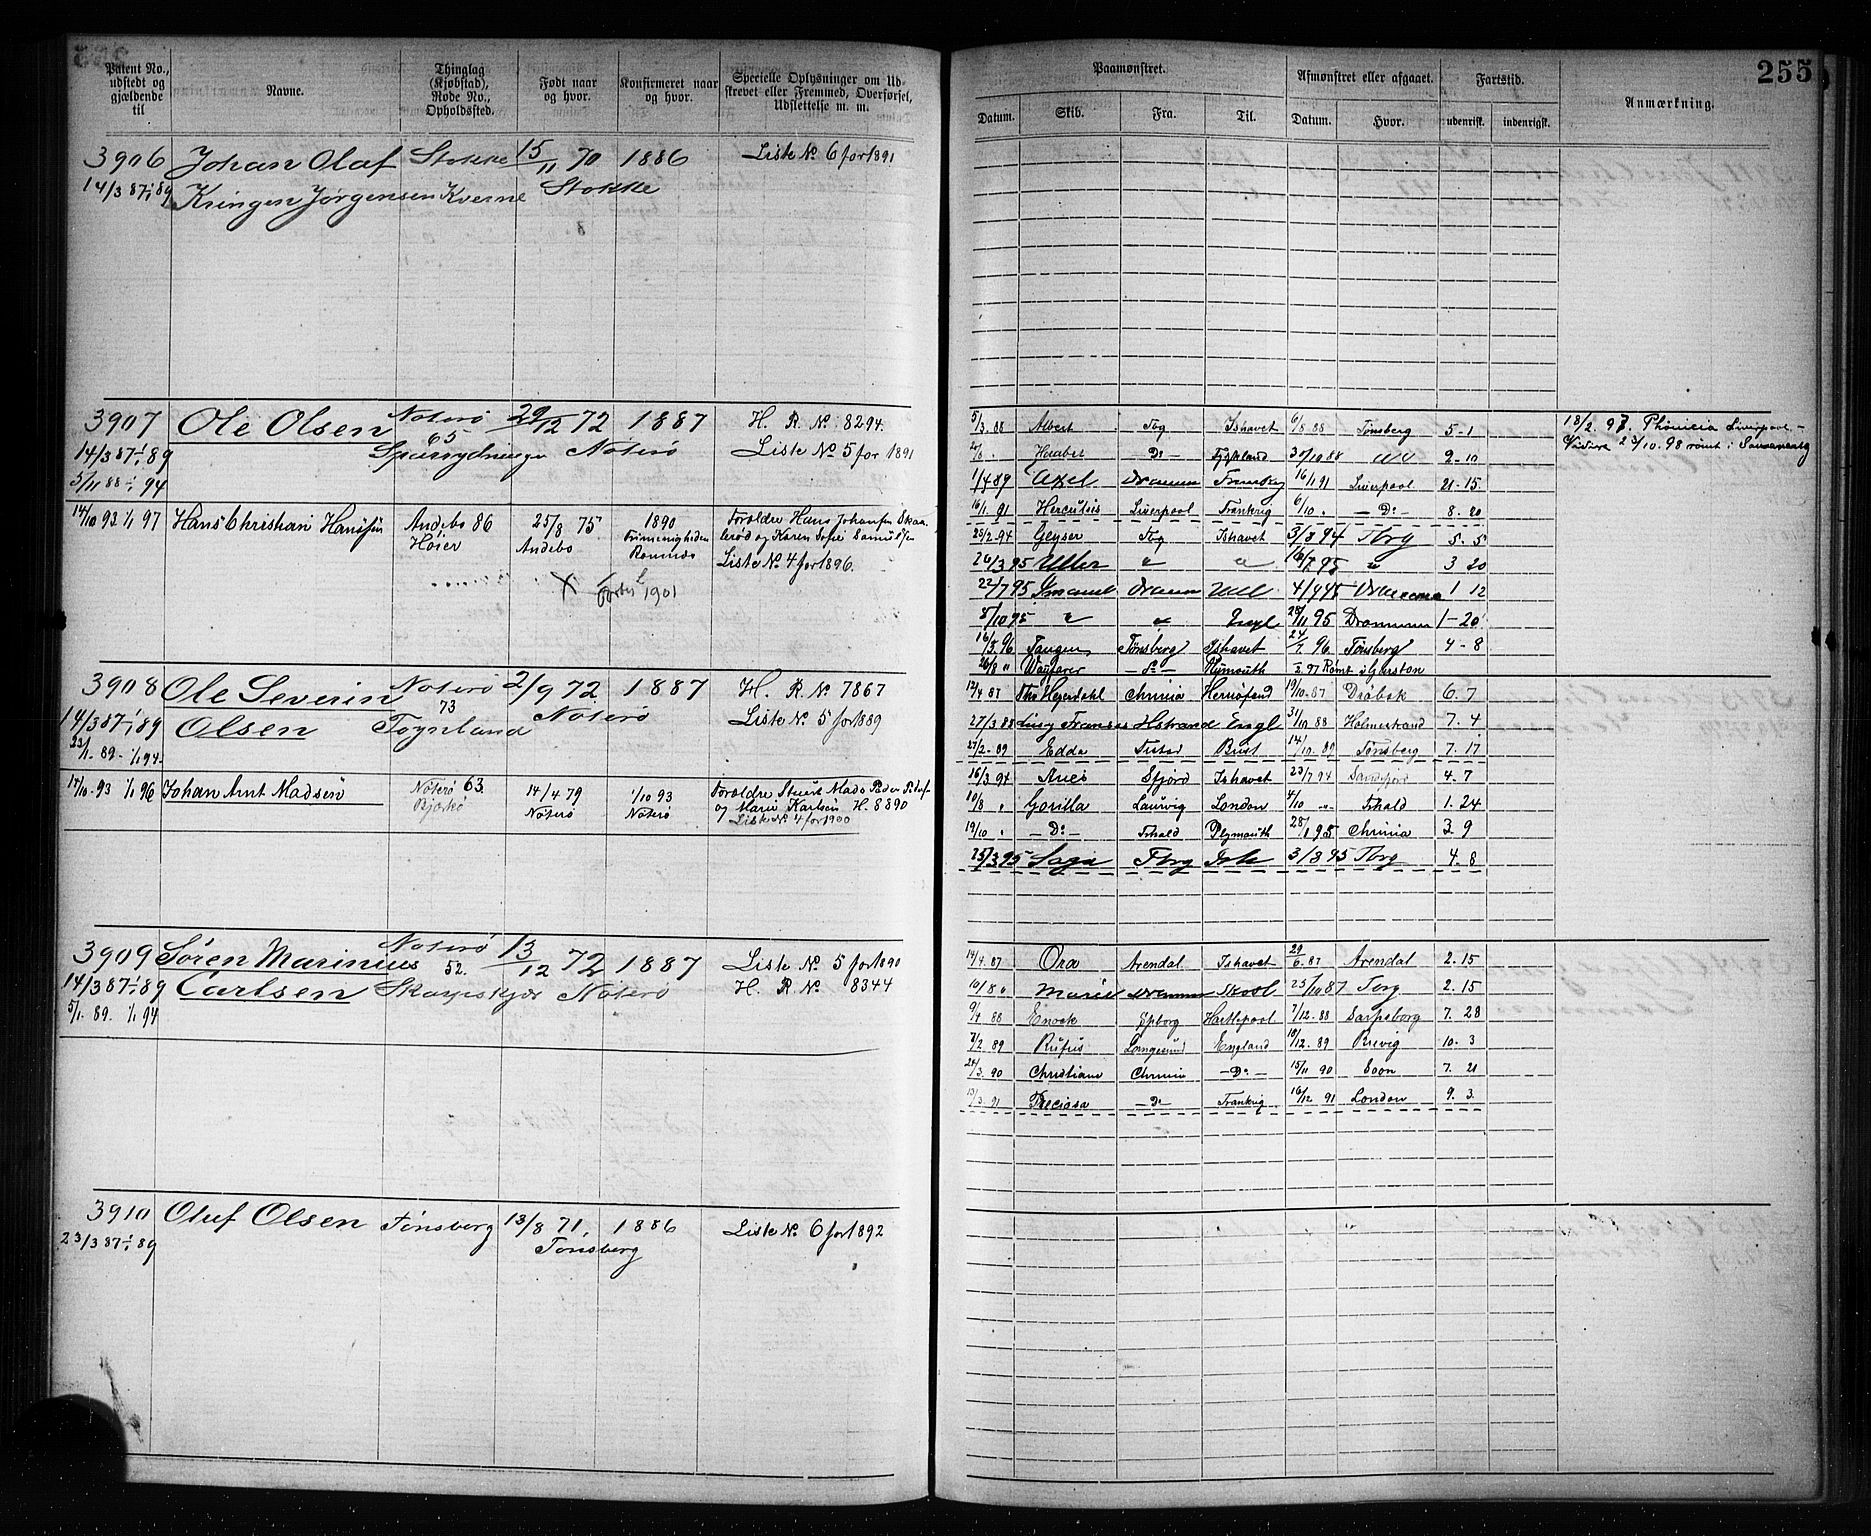 255
Patent No., udstedt og gjældende til
Navne.
Thinglag (Kjøbstad), Rode No., Opholdssted.
Født naar og hvor.
Konfirmeret naar og hvor.
Specielle Oplysninger om Udstrevet eller Fremmed, Overførsel, Udslettelse m. m.
Paamønstret.
Afmønstret eller afgaaet.
Fartstid.
Anmærkning.
Datum. Skib. Fra. Til. Datum. Hvor. udenrikst. indenrigst.
3906 Johan Olaf Stokke 15/11 70 1886 Liste No 6 for 1891
14/3 87 1/1 89 Kringen Jørgensen Kverne Stokke
3907 Ole Olsen Noterø 29/12 72 1887 H. R. No: 8294.
65
14/3 87 1/1 89 Noterø Liste No 5 for 1891
5/11 88 1/1 94
14/10 93 1/1 97 Hans Christian Hansen Andebo 86 25/8 75 1890 Forældre Hans Johansen
Høier Andebo Karen Sofie
Ramnæs Liste No 4 for 1896.
1901
5/3 88 Albert Tbg Ishavet 6/8 88 Tønsberg 5-1
18/2 97. Liverpool
23/10. 98 rømt i
Haabet Do 30/10 88 2-10
1/4 89 Axel Dramm 16/1 91 Liverpool 21-15
16/1 91 Hercules Liverpool Frankrig 6/10 Do 8. 20
25/2 94 Geyser Tbg Ishavet 3/8 94 Tbrg 5. 5
26/3 95 Uller " " 16/7 95 " 3 20
22/7 95 Dramm 1 12
8/10 95 " " Engl 28/11 95 Drammen 1-20
16/3 96 Tangen Tønsberg Ishavet 24/7 96 Tønsberg 4-8
26/8 " Wayfarer Do Plymouth 97 Rømt i
3908 Ole Severin Noterø 2/9 72 1887 H. R. No 7867
73
14/3 87 1/1 89 Olsen Noterø Liste No 5 for 1889
23/1. 89. 1/1 94
14/10 93 1/1 96 Johan Arnt Madsen Noterø 63 14/4 79 1/10 93 Forældre
Noterø Noterø og Marie Karlsen H. 8890
Liste No 4 for 1900
12/4 87 Ths Heyerdahl Chrinia Hernøsand 19/10 87 Drøbak 6. 7
27/3 88 Hstrand Engl 31/10 88 Holmestrand 7. 4
27/2 89 Edda Brest 14/10 89 Tønsberg 7. 17
16/3 94 Sfjord Ishavet 23/7 94 Sandefjord 4. 7
10/8 " Gorilla Laurvig London 4/10 " Fshald 1. 24
19/10 " Do Fshald Plymouth 28/1 95 Chrinia 3 9
25/3 95 Saga Tbrg Ish 3/8 95 Tbrg 4. 8
3909 Søren Marinius Noterø 13/12 72 1887 Liste No 5 for 1890
52.
14/3 87 1/1 89 Carlsen Noterø H. R. No 8344
5/1. 89. 1/1 94
14/4 87 Ora Arendal Ishavet 29/6 87 Arendal 2. 15
10/8 " Marie Dramm 23/10 87 Tbrg 2. 15
9/4 88 Enock Hartlepool 7/12 88 Sarpsborg 7. 28
7/2 89 Rufus Langesund England 10/12 89 Brevig 10. 3
24/3. 90 Christiane Chrinia Do 15/11 90 7. 21
13/3. 91 Preciosa Do Frankrig 16/12 91 London 9. 3
3910 Oluf Olsen Tønsberg 13/8 71 1886 Liste No 6 for 1892
23/3 87 1/1 89 Tønsberg